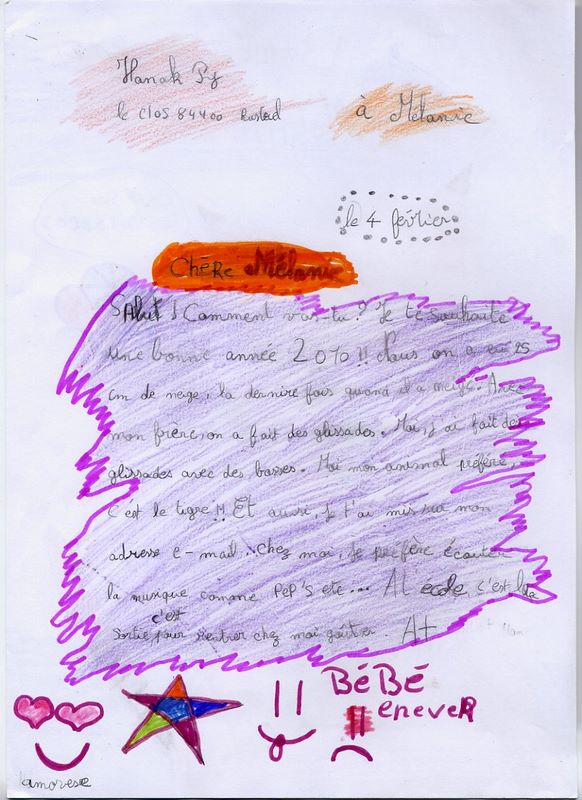 Hanak Py
le clos 84400 Rustrel
à Mélanie
le 4 février
Chère Mélanie
Salut ! Comment vas-tu ? Je te souhaite
une bonne année 2010 !! Nous on a eu 25
cm de nege, la dernire fois quand il a neigé. Avec
mon frère, on a fait des glissades. Moi, j'ai fait des
glissades avec des bosses. Moi mon animal préféré,
C'ést le tigre !! Et aussi, je t'ai mis sur mon
adresse e-mail... Chez moi, je préfère écouter
la musique comme PeP's etc... A L école s'est la
sortie, c'est pour rentrer chez moi goûter. A+
BéBé
enever
amoureuse